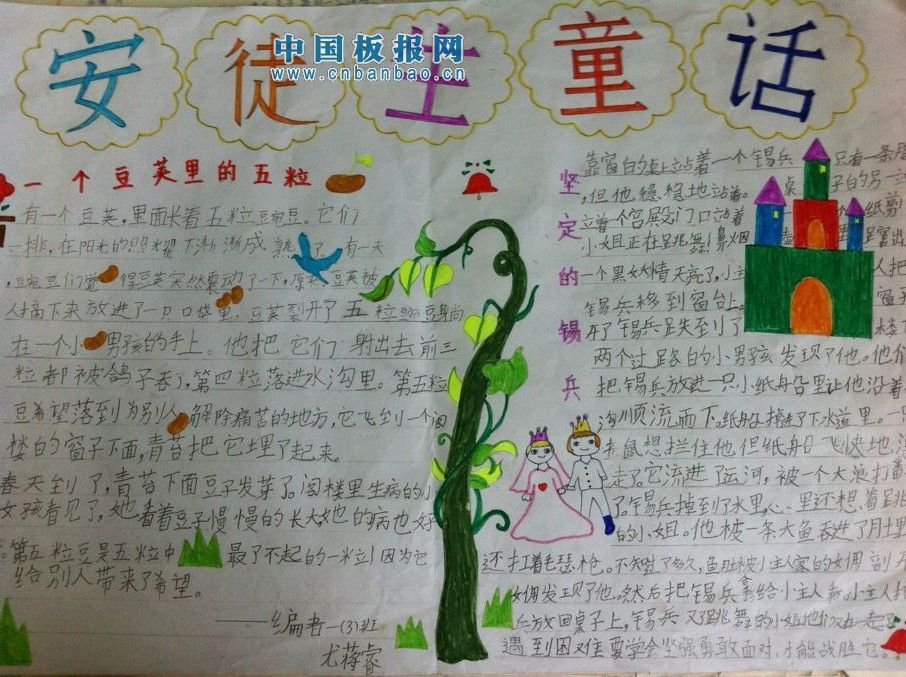 安徒生童话
中国板报网
www.cnbanbao.cn
一个豆荚里的五粒
有一个豆荚,里面长着五粒豌豆。它们
一排,在阳光的照耀下渐渐成熟了。有一天
,豌豆们觉得豆荚突然震动了一下,原来豆荚被
人摘下来放进了一只口袋里,豆荚裂开了五粒豌豆身尚
在一个小男孩的手上。他把它们射出去前三
粒都被鸽子吞了,第四粒落进水沟里。第五粒
豆希望落到为别人解除痛苦的地方,它飞到一个阁
楼的窗子下面,青苔把它埋了起来。
春天到了,青苔下面豆子发芽了。阁楼里生病的小
女孩看见了,她看着豆子慢慢的长大她的病也好
第五粒豆是五粒中最了不起的一粒!因为它
给别人带来了希望。
——编者一(3)班
尤蒋睿
坚定的锡兵
靠窗台的桌上站着一个锡兵 只有一条
,但他稳稳地站着。桌子的另一
立着个宫殿,门口站着 纸剪
小姐正在跳舞!鼻烟
一个黑妖精天亮了,小主人把
锡兵移到窗台。
开了锡兵跌到了
两个过路的小男孩发现了他。他们
把锡兵放进一只小纸船里让他沿着
沟顺流而下,纸船掉进了下水道里。
鼠想拦住他但纸船飞快地
走了。它流进了运河,被一个大浪打着
了。锡兵掉到了水里,心里还想着跳
的小姐。他被一条大鱼吞进了肚里
还打着毛瑟枪。不知过了多久,鱼 小主人家的女佣剖
女佣发现了他。然后把锡兵拿给小主人看小主人把
兵放回桌子上,锡兵又跟跳舞的小姐他们又在一起了
遇到困难要学会坚强勇敢面对,才能战胜它。